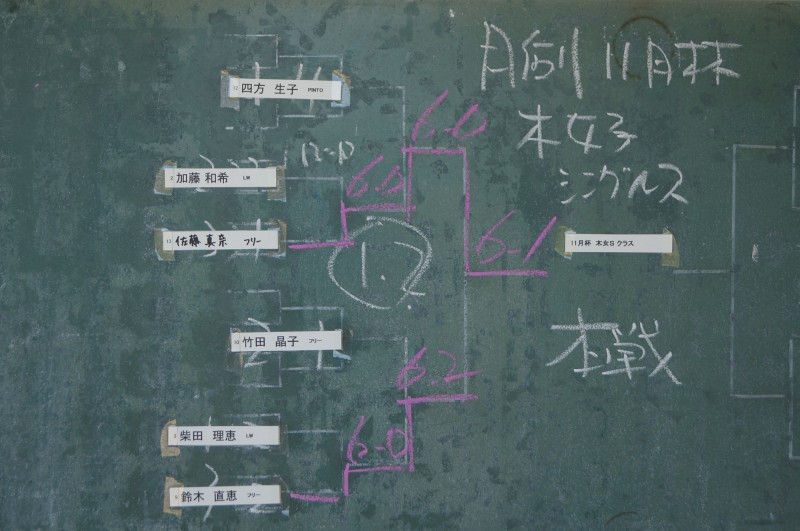 月例 11月杯
木女子
シングルス
四方 生子 PINTO
6-0
12-10
加藤 和希 LM
6.0
佐藤 真奈 フリー
1.2
6-1
11月杯 木女S クラス
竹田 晶子 フリー
本戦
6.2
柴田 理恵 LM
6-0
鈴木 直恵 フリー